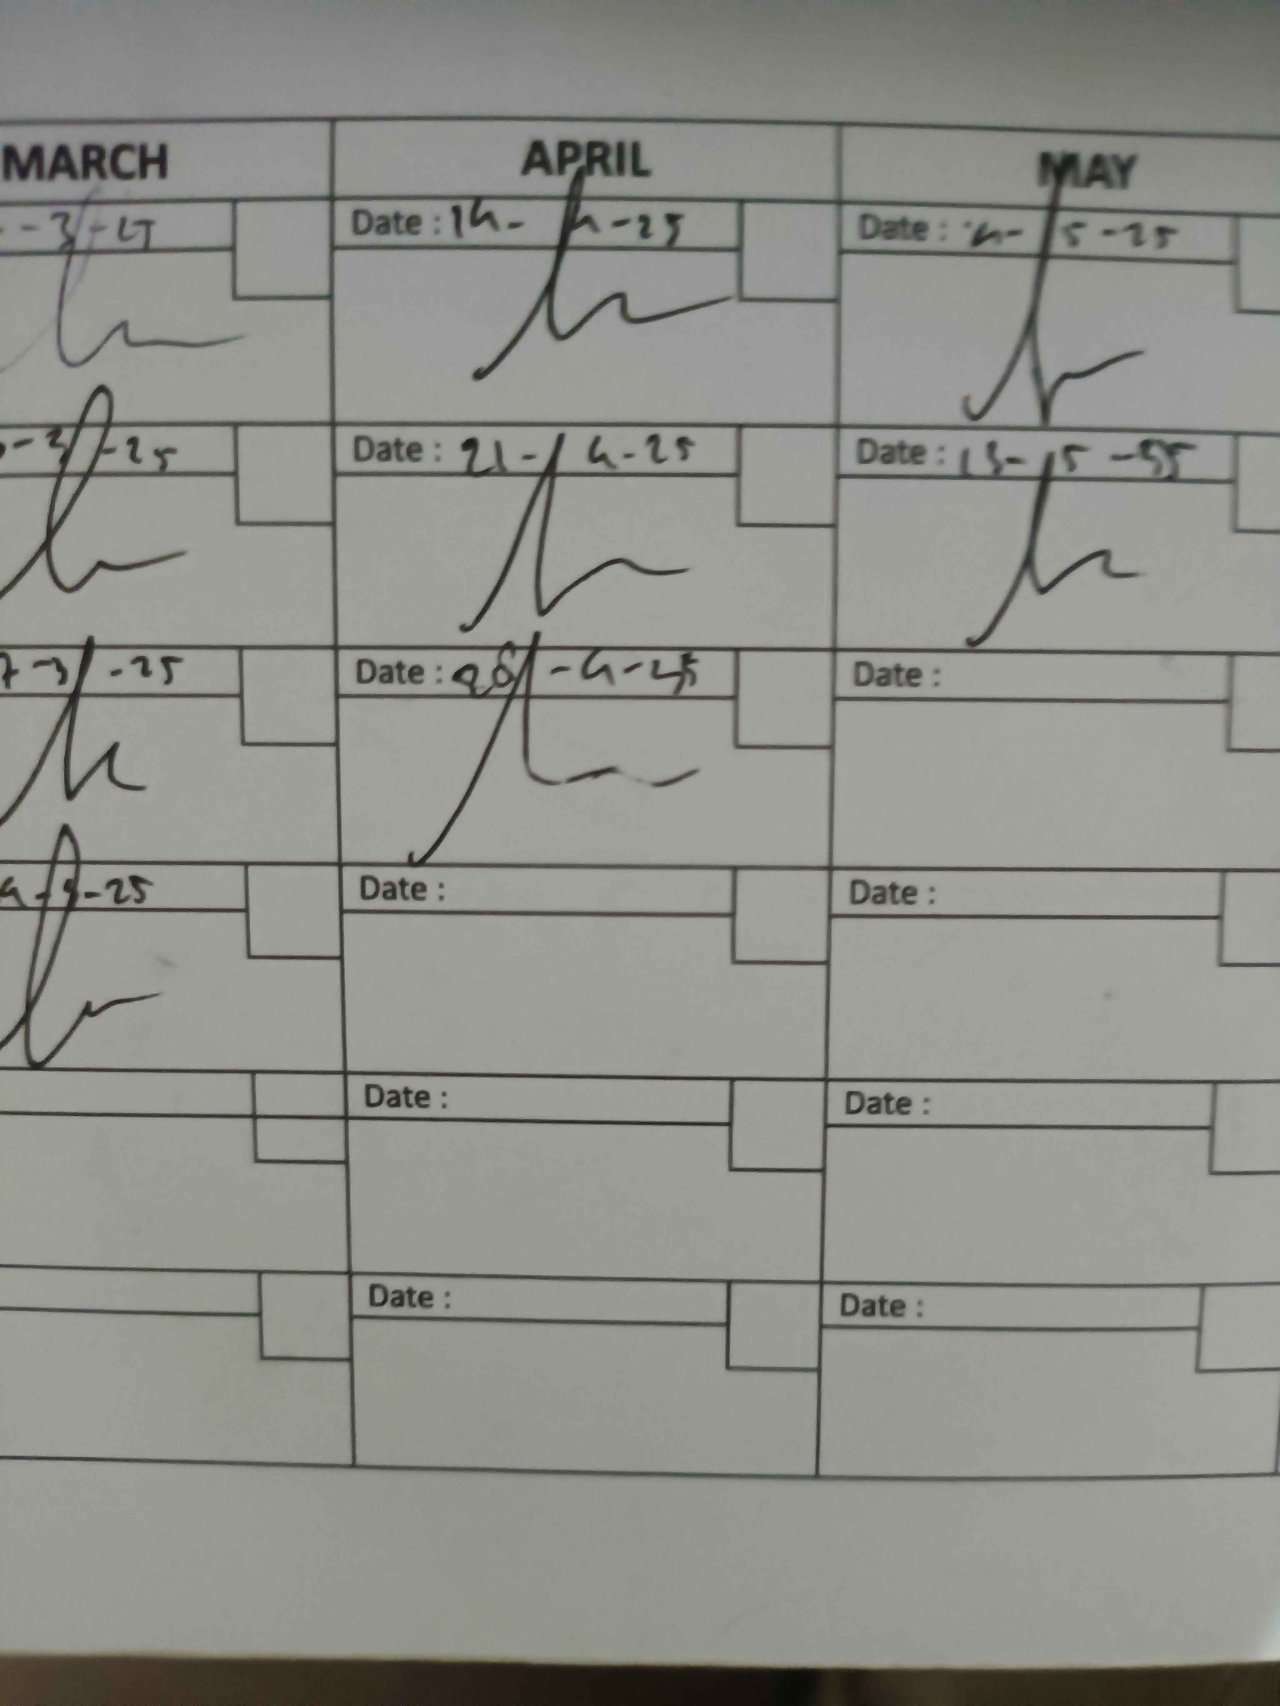 MARCH APRIL MAY
-3-25 Date : 14-4-25 Date : 5-25
-3-25 Date : 21-4-25 Date : 13-5-
7-3-25 Date : 28-4-25 Date :
4- -25 Date : Date :
Date : Date :
Date : Date :